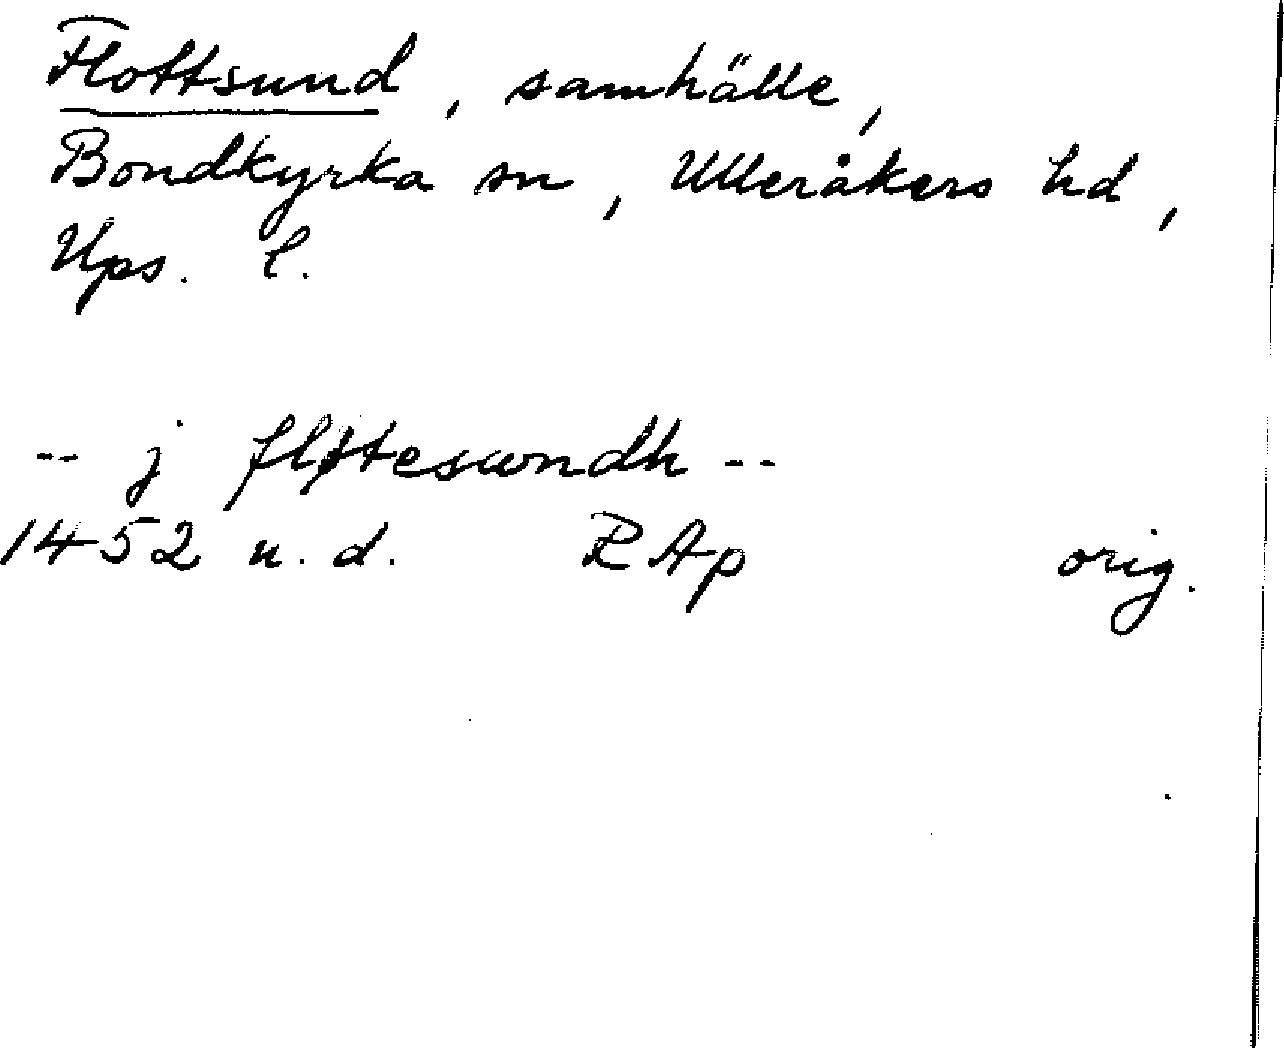 Flottsund, samhälle,
Bondkyrka sn, Ulleråkers hd,
Ups. l.
-- j fløtesundh --
1452 u. d. RAp orig.